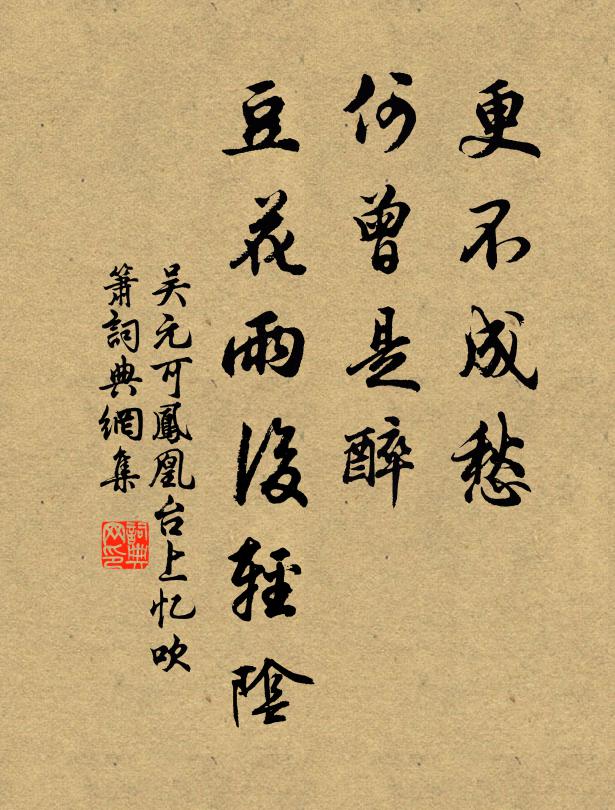 更不成愁
何曾是醉
豆花雨後輕陰
吴元可鳳凰台上忆吹
簫詞典網集
詞典
网印